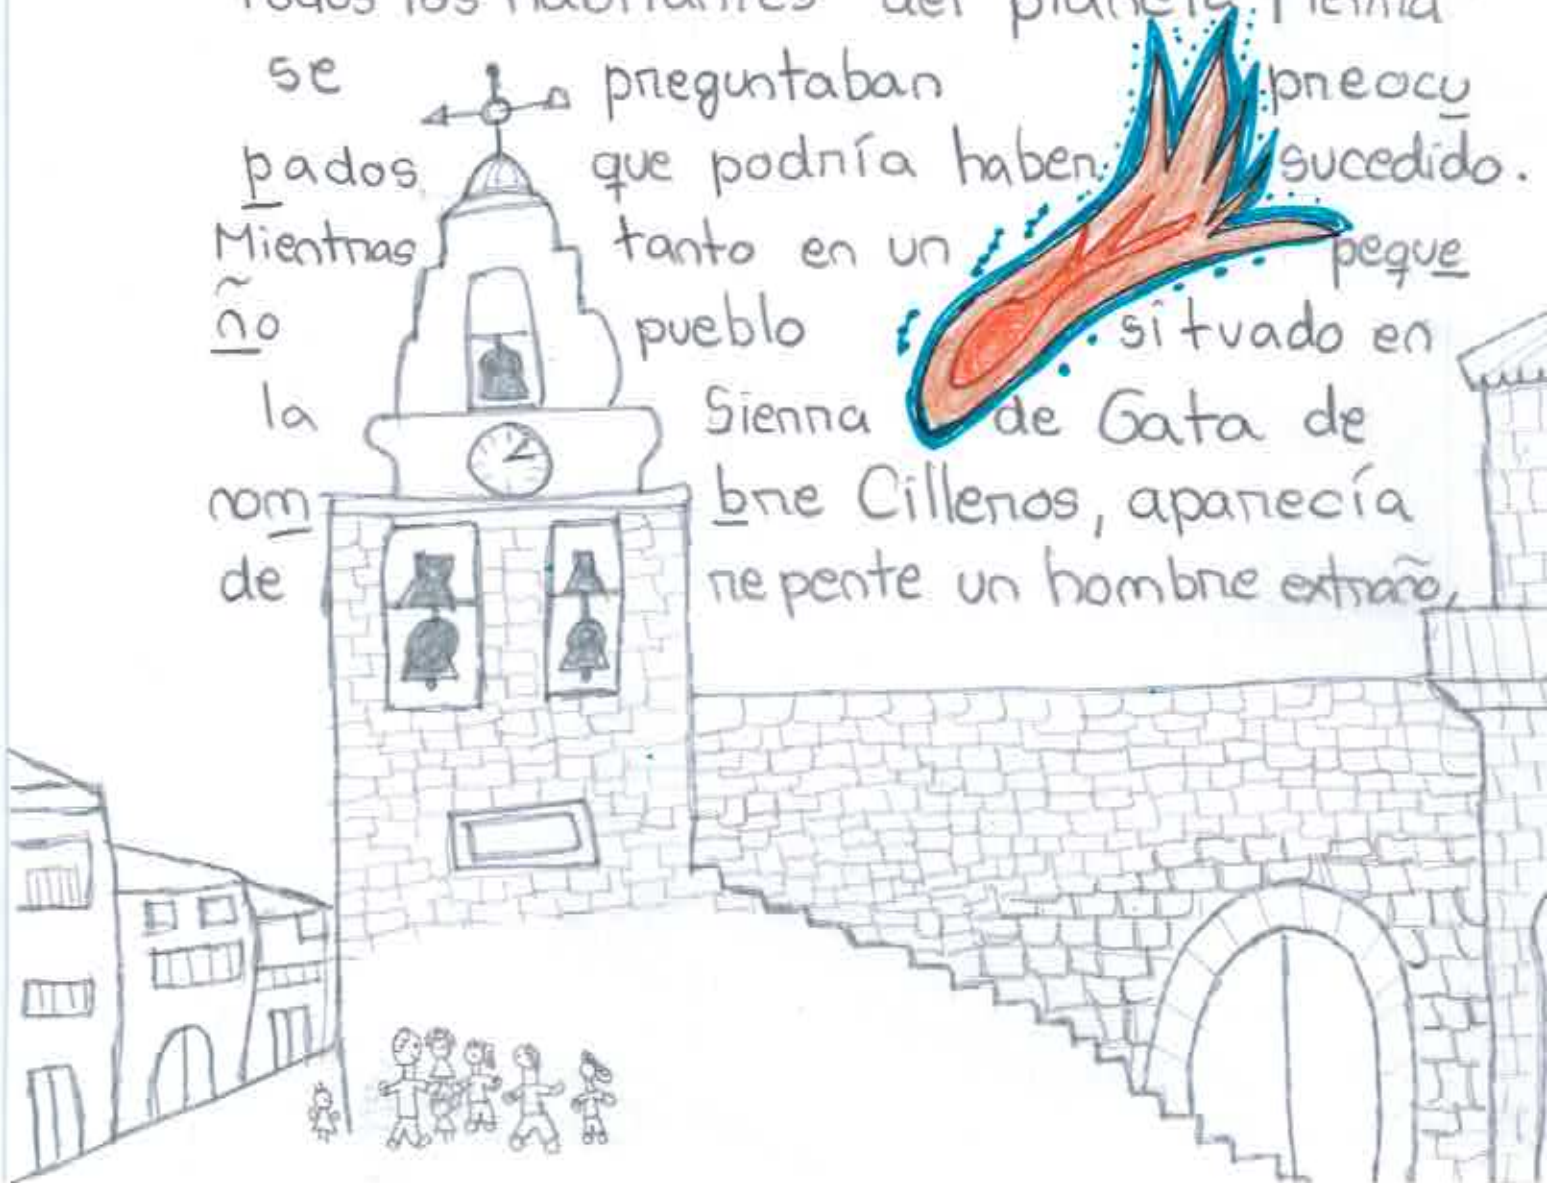 Todos los habitantes del planeta Tierra
se preguntaban preocu
pados que podría haber sucedido.
Mientras tanto en un peque
ño pueblo situado en
la Sierra de Gata de
nom bre Cilleros, aparecía
de repente un hombre extraño,